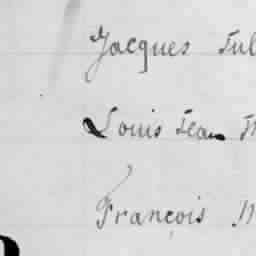 Jacques
Louis Jean
François